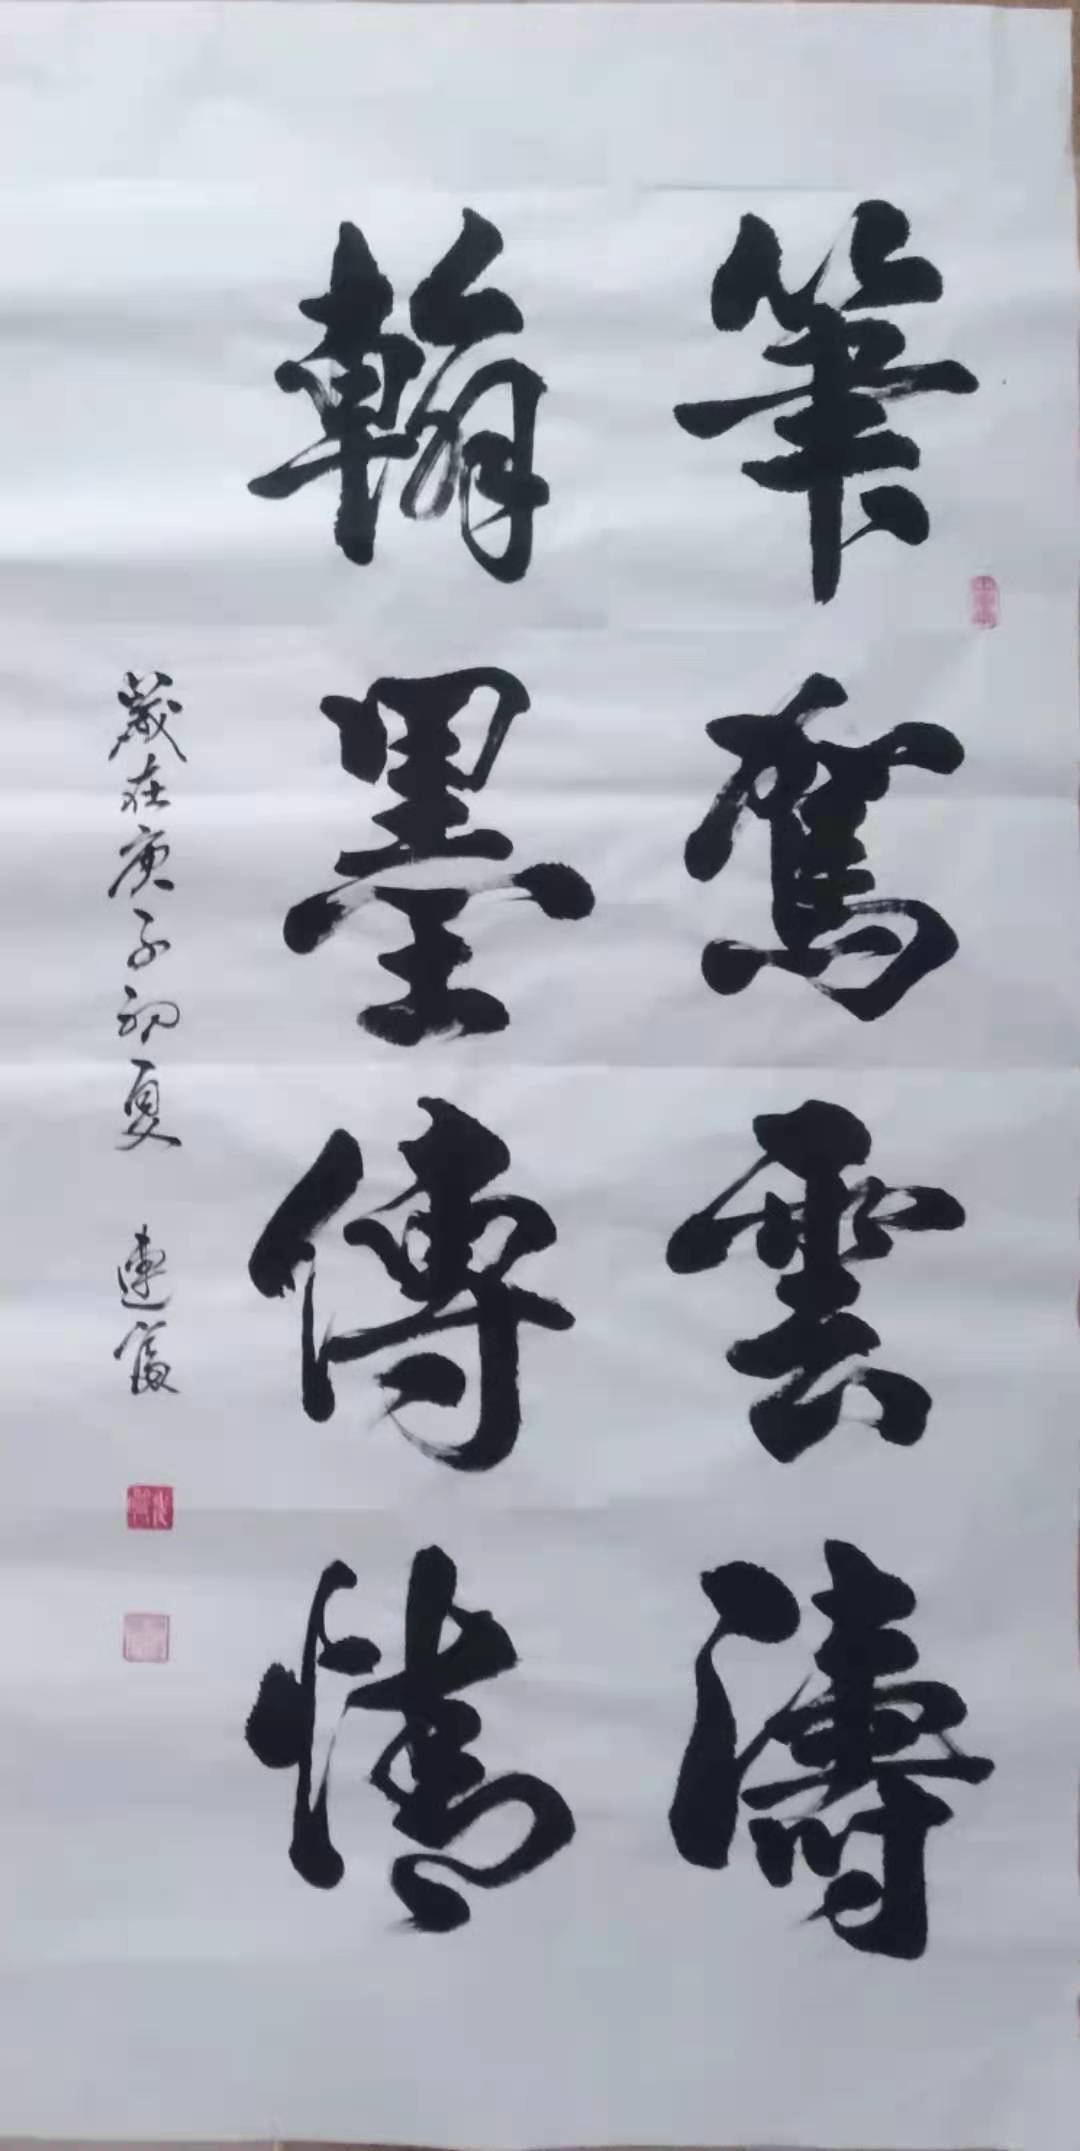 筆駕雲濤
翰墨傳情
歲在庚子初夏 連富